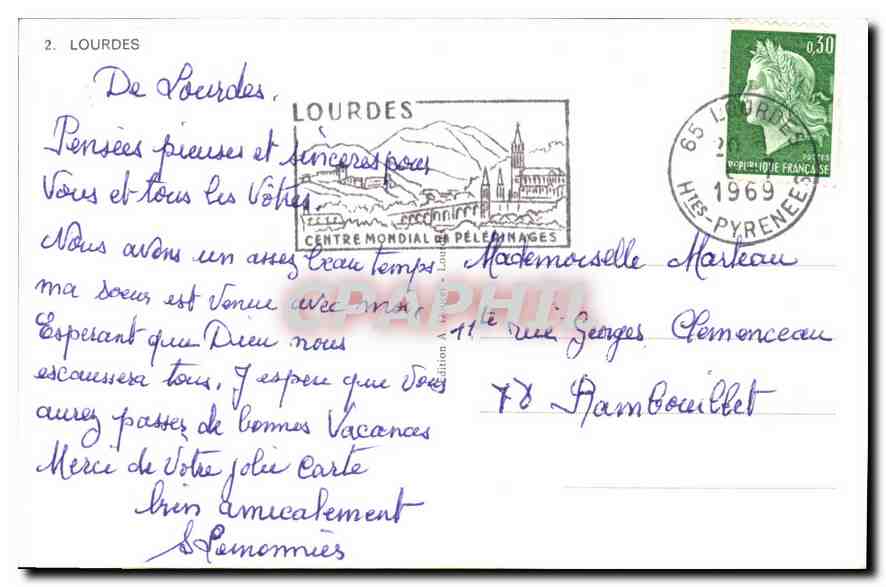 2. LOURDES
De Lourdes.
Pensées pieuses et sincères pour
Vous et tous les Vôtres.
Nous avons un assez beau temps
ma soeur est venue avec moi.
Esperant que Dieu nous
escaussera tous. J'espere que Vous
aurez passer de bonnes Vacances
Merci de Votre jolie Carte
bien amicalement
LOURDES
CENTRE MONDIAL DE PÉLERINAGES
0,30
POSTES
REPUBLIQUE FRANÇAISE
65 LOURDES
1969
HTES-PYRENEES
Mademoiselle Marteau
rue Georges Clemenceau
78 Rambouillet
CPAPHIL